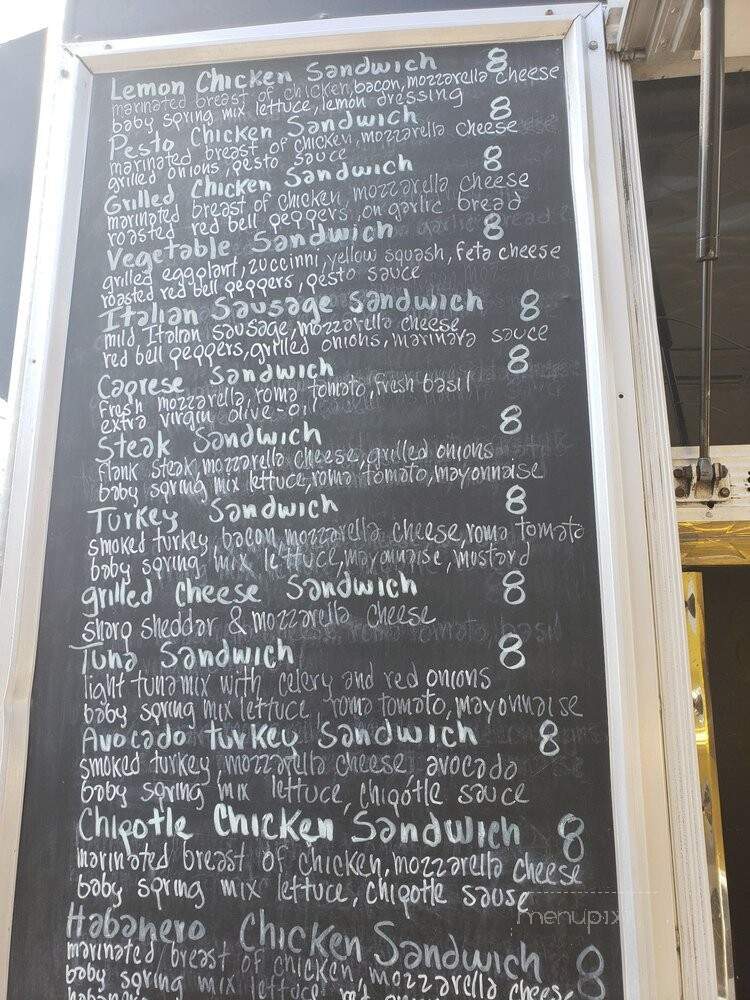 Lemon Chicken Sandwich 8
marinated breast of chicken, bacon, mozzarella cheese
baby spring mix lettuce, lemon dressing
Pesto Chicken Sandwich 8
marinated breast of chicken, mozzarella cheese
grilled onions, pesto sauce
Grilled Chicken Sandwich 8
marinated breast of chicken, mozzarella cheese
roasted red bell peppers, on garlic bread
Vegetable Sandwich 8
grilled eggplant, zuccinni, yellow squash, feta cheese
roasted red bell peppers, pesto sauce
Italian Sausage Sandwich 8
mild Italian sausage, mozzarella cheese
red bell peppers, grilled onions, marinara sauce
Caprese Sandwich 8
Fresh mozzarella, roma tomato, fresh basil
extra virgin olive-oil
Steak Sandwich 8
Flank steak, mozzarella cheese, grilled onions
baby spring mix lettuce, roma tomato, mayonnaise
Turkey Sandwich 8
smoked turkey, bacon, mozzarella cheese, roma tomato
baby spring mix lettuce, mayonnaise, mustard
grilled Cheese Sandwich 8
sharp sheddar & mozzarella cheese
Tuna Sandwich 8
light tuna mix with celery and red onions
baby spring mix lettuce, roma tomato, mayonnaise
Avocado turkey Sandwich 8
smoked turkey, mozzarella cheese, avocado
baby spring mix lettuce, chipotle sauce
Chipotle Chicken Sandwich 8
marinated breast of chicken, mozzarella cheese
baby spring mix lettuce, chipotle sause
menupix
Habanero Chicken Sandwich 8
marinated breast of chicken, mozzarella cheese
baby spring mix lettuce, red
habanero